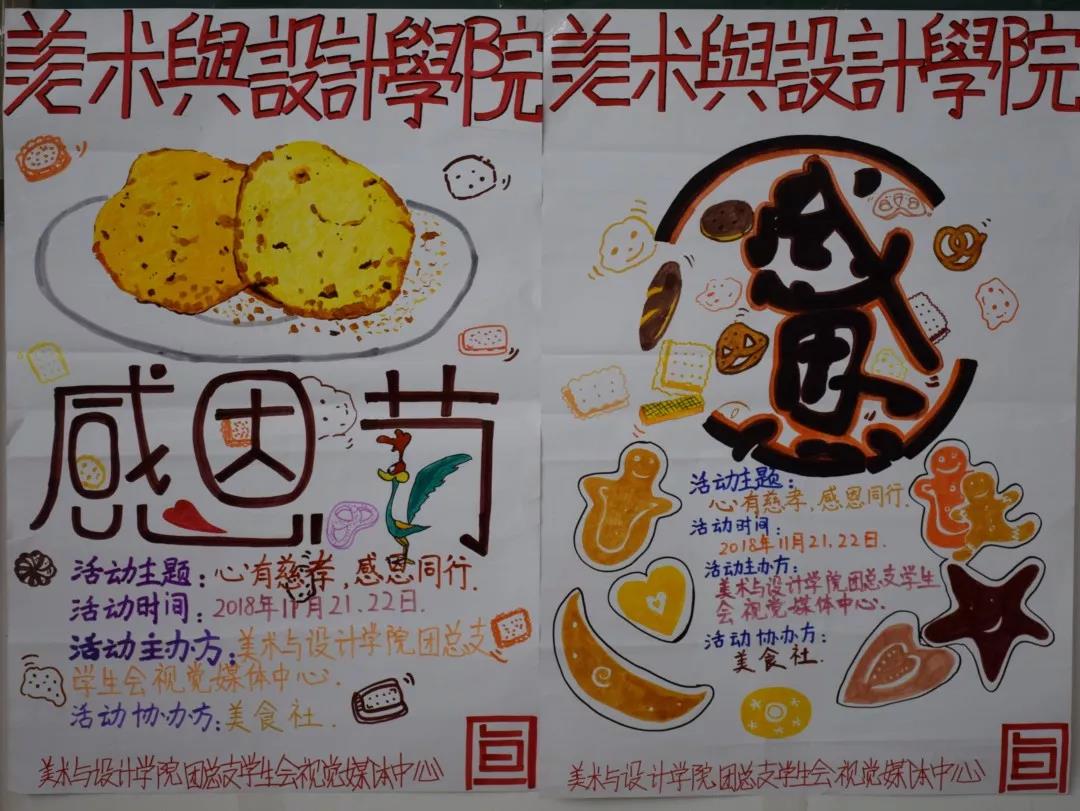 美术與設計學院
感恩节
活动主题：心有慈孝，感恩同行.
活动时间：2018年11月21.22日.
活动主办方：美术与设计学院团总支
学生会视觉媒体中心.
活动协办方：美食社.
美术与设计学院团总支学生会视觉媒体中心
美术與設計學院
感恩
活动主题：
心有慈孝，感恩同行.
活动时间：
2018年11月21.22日.
活动主办方：
美术与设计学院团总支学生
会视觉媒体中心.
活动协办方：
美食社.
美术与设计学院团总支学生会视觉媒体中心